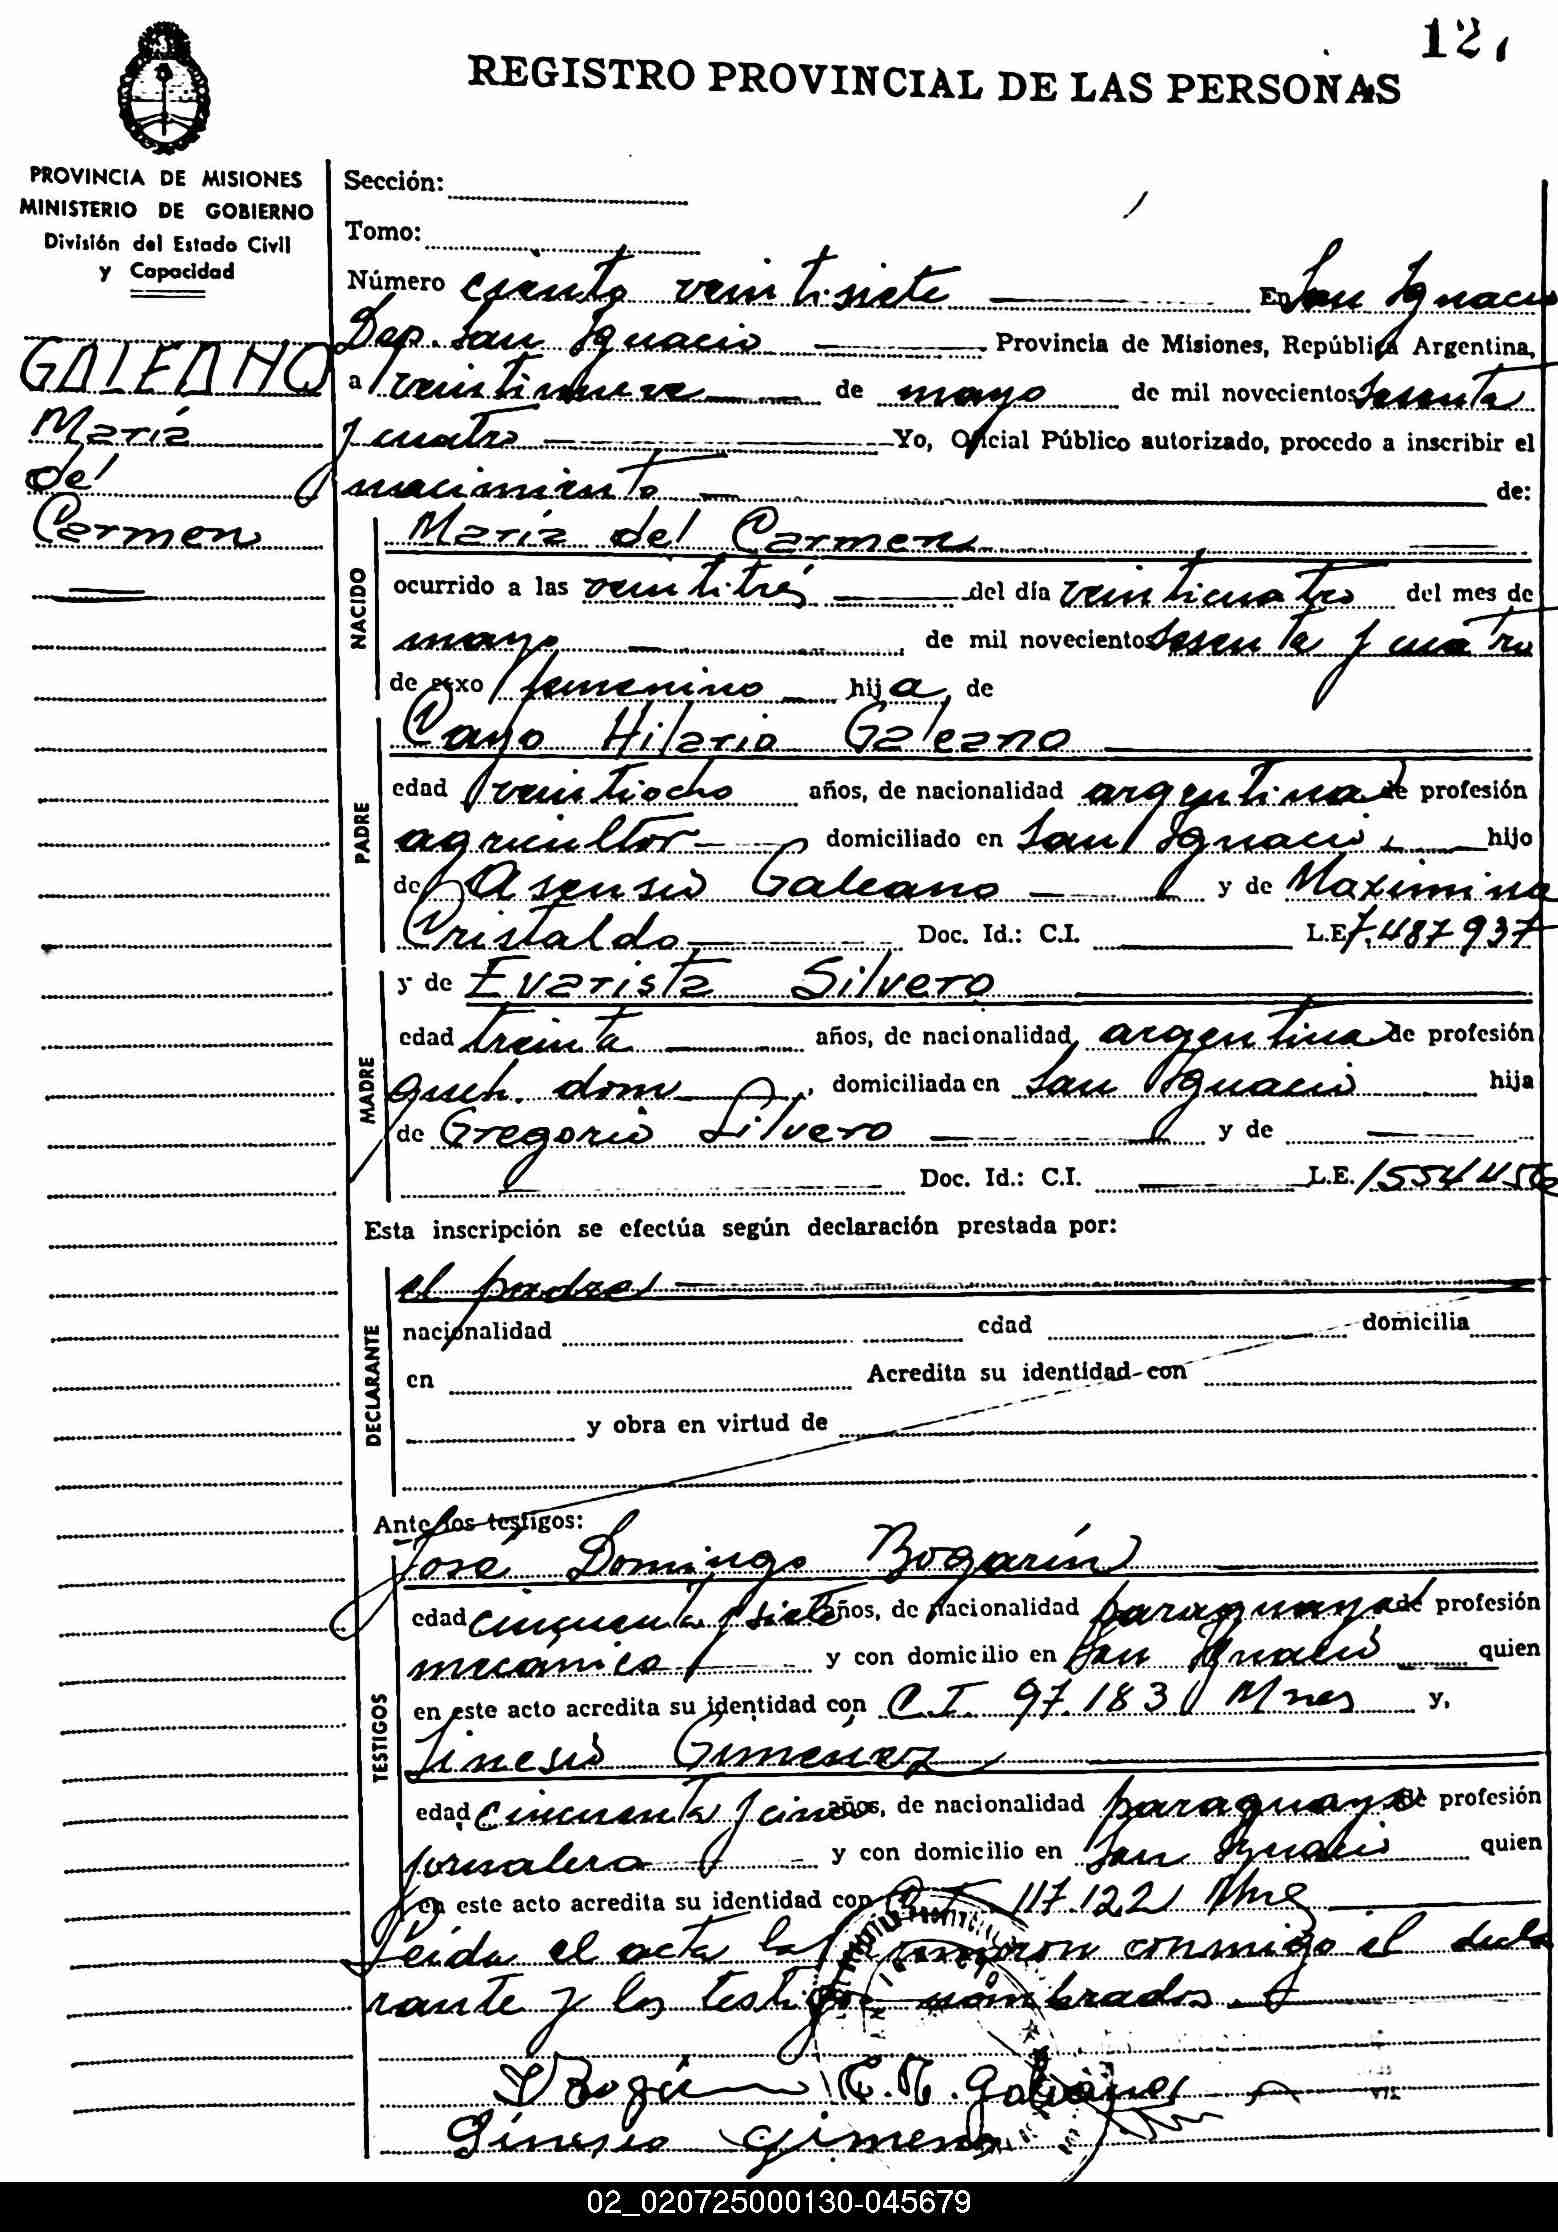 127
REGISTRO PROVINCIAL DE LAS PERSONAS
PROVINCIA DE MISIONES
MINISTERIO DE GOBIERNO
División del Estado Civil
y Capacidad
GALEANO
María
del
Carmen
Sección:
Tomo:
Número ciento veintisiete En San Ignacio
Dep. San Ignacio Provincia de Misiones, República Argentina,
a veintinueve de mayo de mil novecientos sesenta
y cuatro Yo, Oficial Público autorizado, procedo a inscribir el
nacimiento de:
NACIDO
María del Carmen
ocurrido a las veintitrés del día veinticuatro del mes de
mayo de mil novecientos sesenta y cuatro
de sexo femenino hija de
PADRE
Cayo Hilario Galeano
edad veintiocho años, de nacionalidad argentina de profesión
agricultor domiciliado en San Ignacio hijo
de Asensio Galeano y de Maximina
Cristaldo Doc. Id.: C.I. L.E. 7.487937
MADRE
y de Evarista Silvero
edad treinta años, de nacionalidad argentina de profesión
queh. dom domiciliada en San Ignacio hija
de Gregorio Silvero y de
Doc. Id.: C.I. L.E. 1554456
Esta inscripción se efectúa según declaración prestada por:
DECLARANTE
el padre
nacionalidad edad domicilia
en Acredita su identidad con
y obra en virtud de
Ante los testigos:
TESTIGOS
José Domingo Bogarín
edad cincuenta y siete años, de nacionalidad paraguaya de profesión
mecánico y con domicilio en San Ignacio quien
en este acto acredita su identidad con C.I. 97.183 Mnes y,
Sinesio Gimenez
edad cincuenta y cinco años, de nacionalidad paraguaya de profesión
jornalero y con domicilio en San Ignacio quien
en este acto acredita su identidad con 117.122 Mnes
Leida el acta la firmaron conmigo el decla
rante y los testigos nombrados.
C. H. Galeano
Ginesio Gimenez
02_020725000130-045679